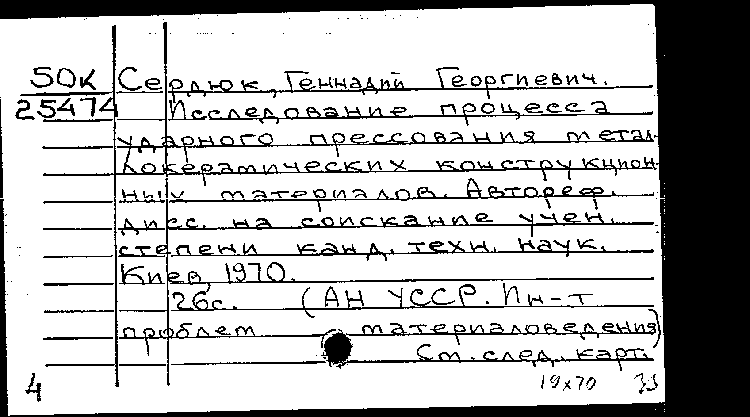 50к Сердюк, Геннадий Георгиевич.
25474 Исследование процесса
ударного прессования метал-
локерамических конструкцион-
ных материалов. Автореф.
дисс. на соискание учен.
степени канд. техн. наук.
Киев, 1970.
26с. (АН УССР. Ин-т
проблем материаловедения)
См. след. карт.
4 19х70